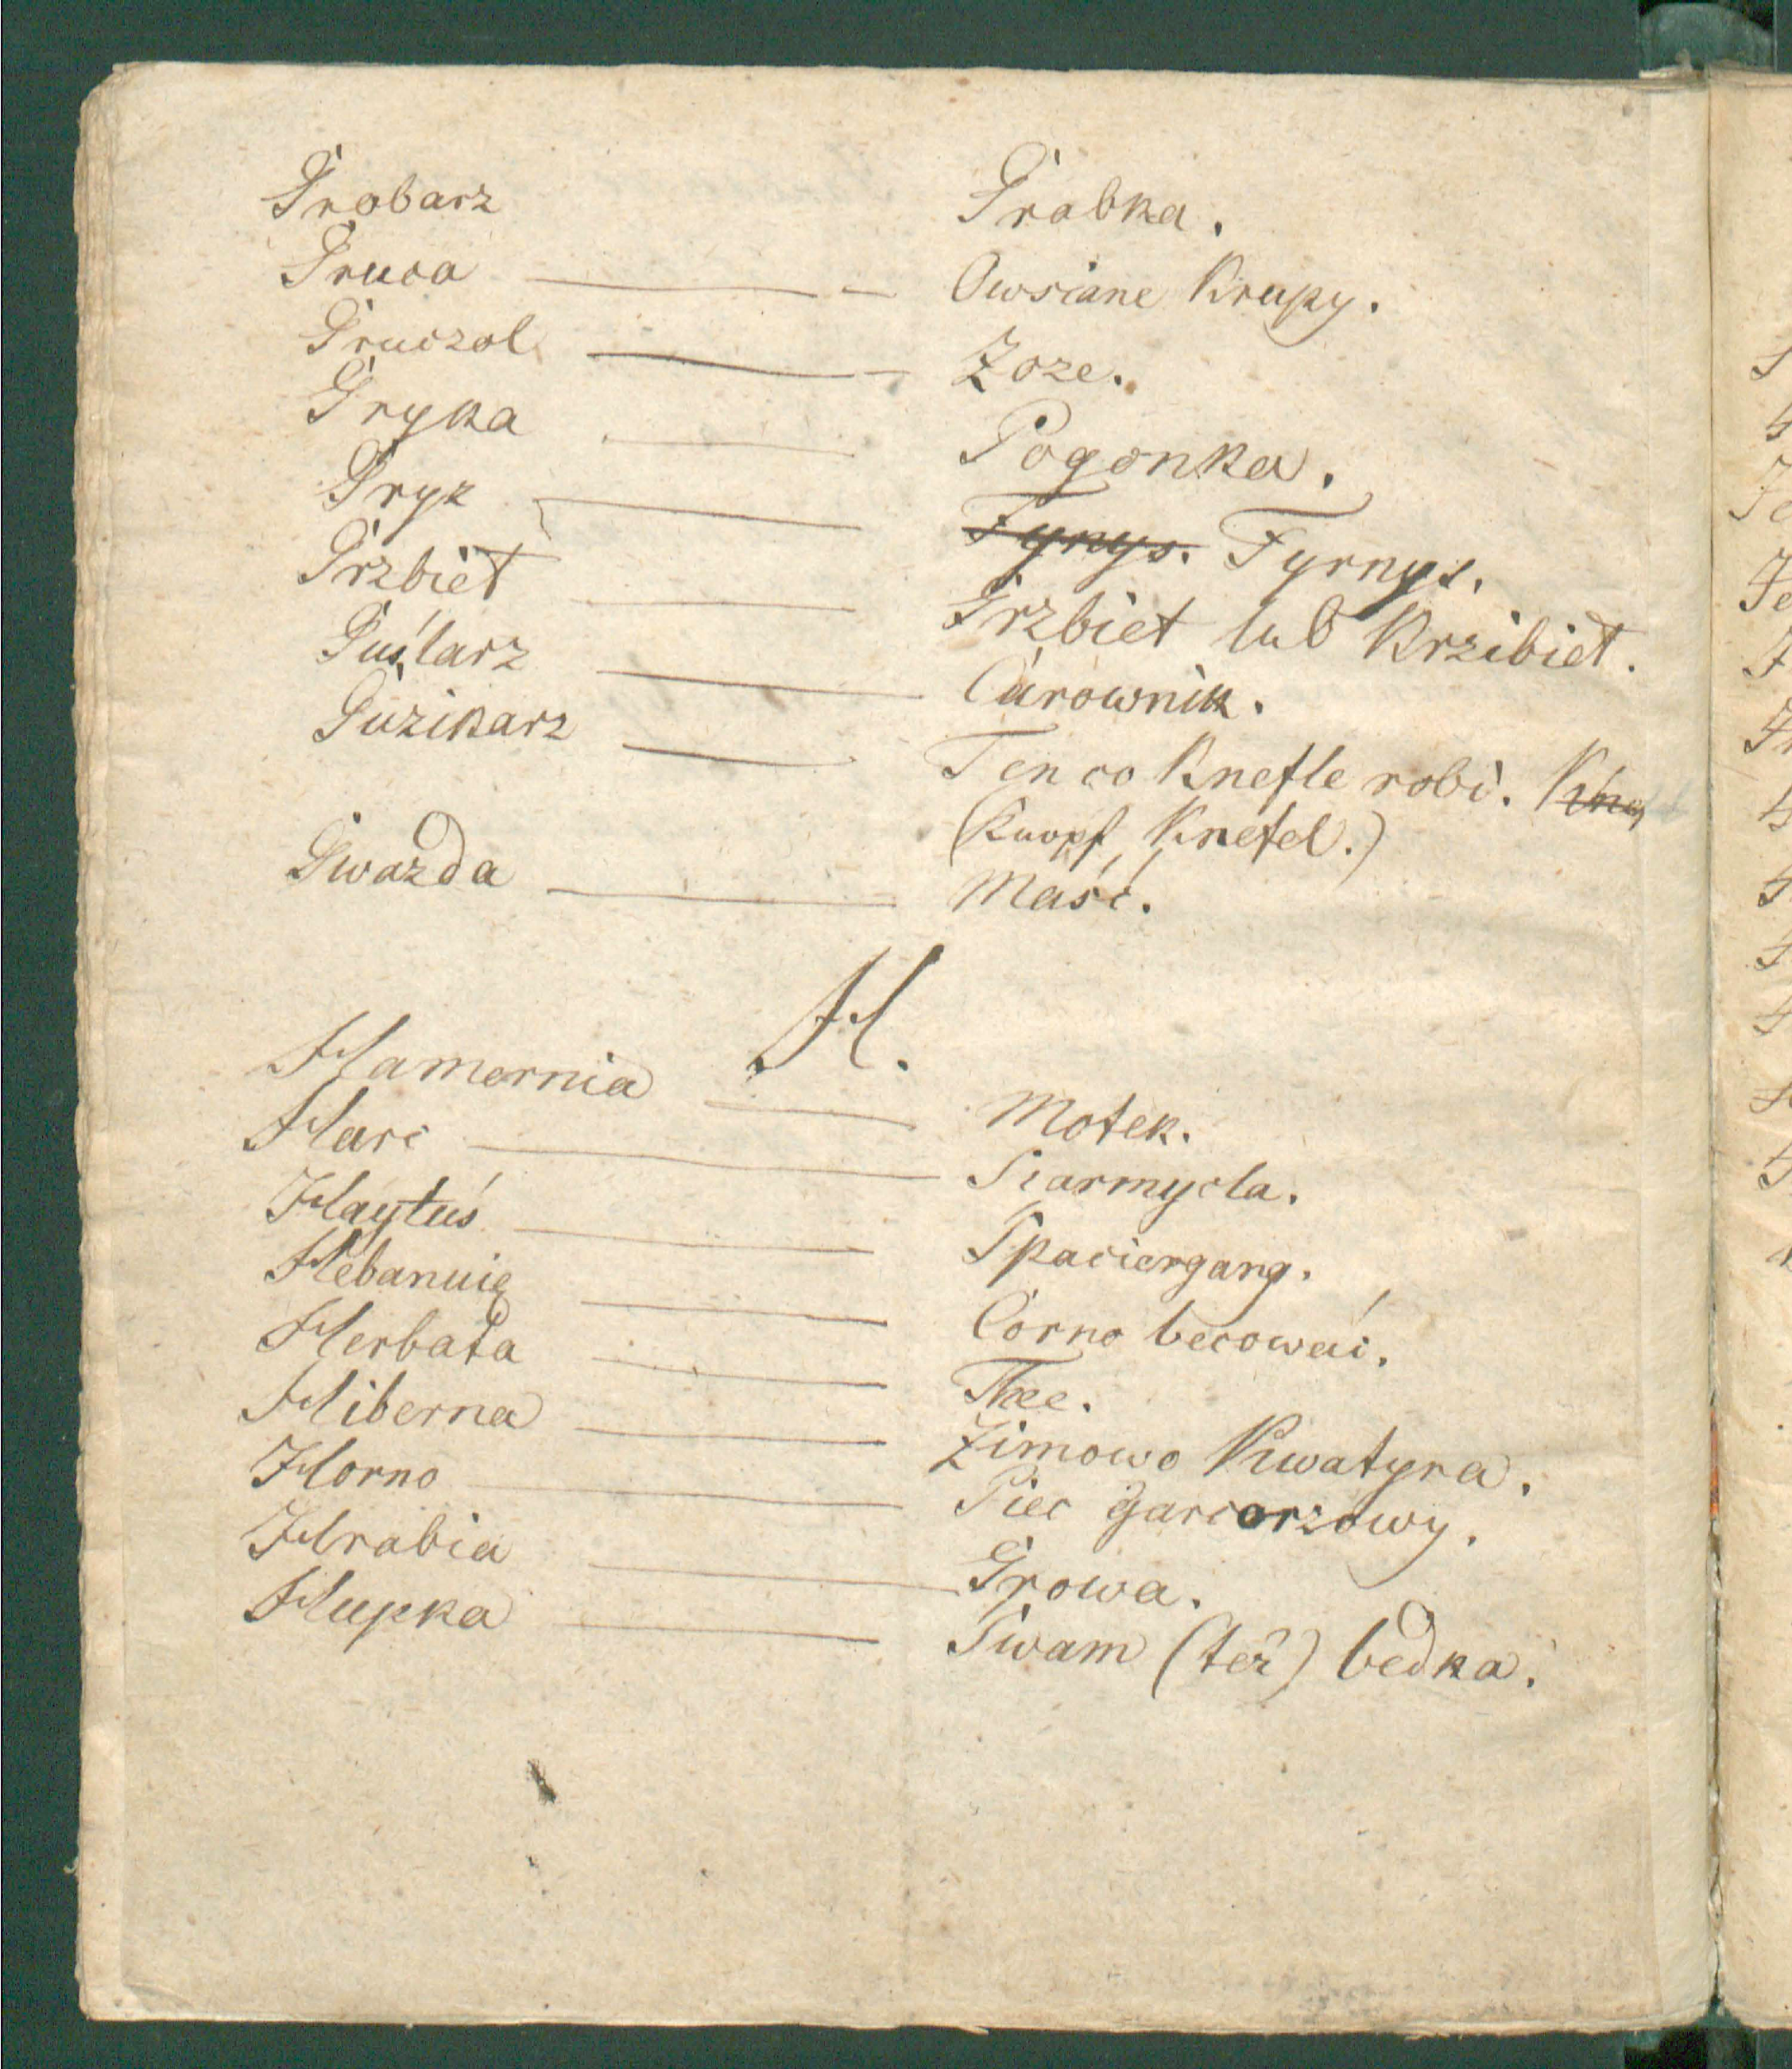 Grobarz Grabka.
Gruca — Owsiane Krupy.
Gruczol — Zoze.
Gryka — Pogonka.
Gryz — Fynys. Fyrnys.
Grzbiet — Grzbiet lub Krzibiet.
Guślarz — Carownik.
Guzikarz — Ten co Knefle robi. Kne
(Knopf, Knefel.)
Gwazda — Maść.
H.
Hamernia — Motek.
Harc — Siarmycla.
Haytuś — Spaciergang.
Hebanuię — Corno becować.
Herbata — Thee.
Hiberna — Zimowo Kwatyra.
Horno — Piec garcarzowy.
Hrabia — Growa.
Hupka — Gwam (też) bedka.